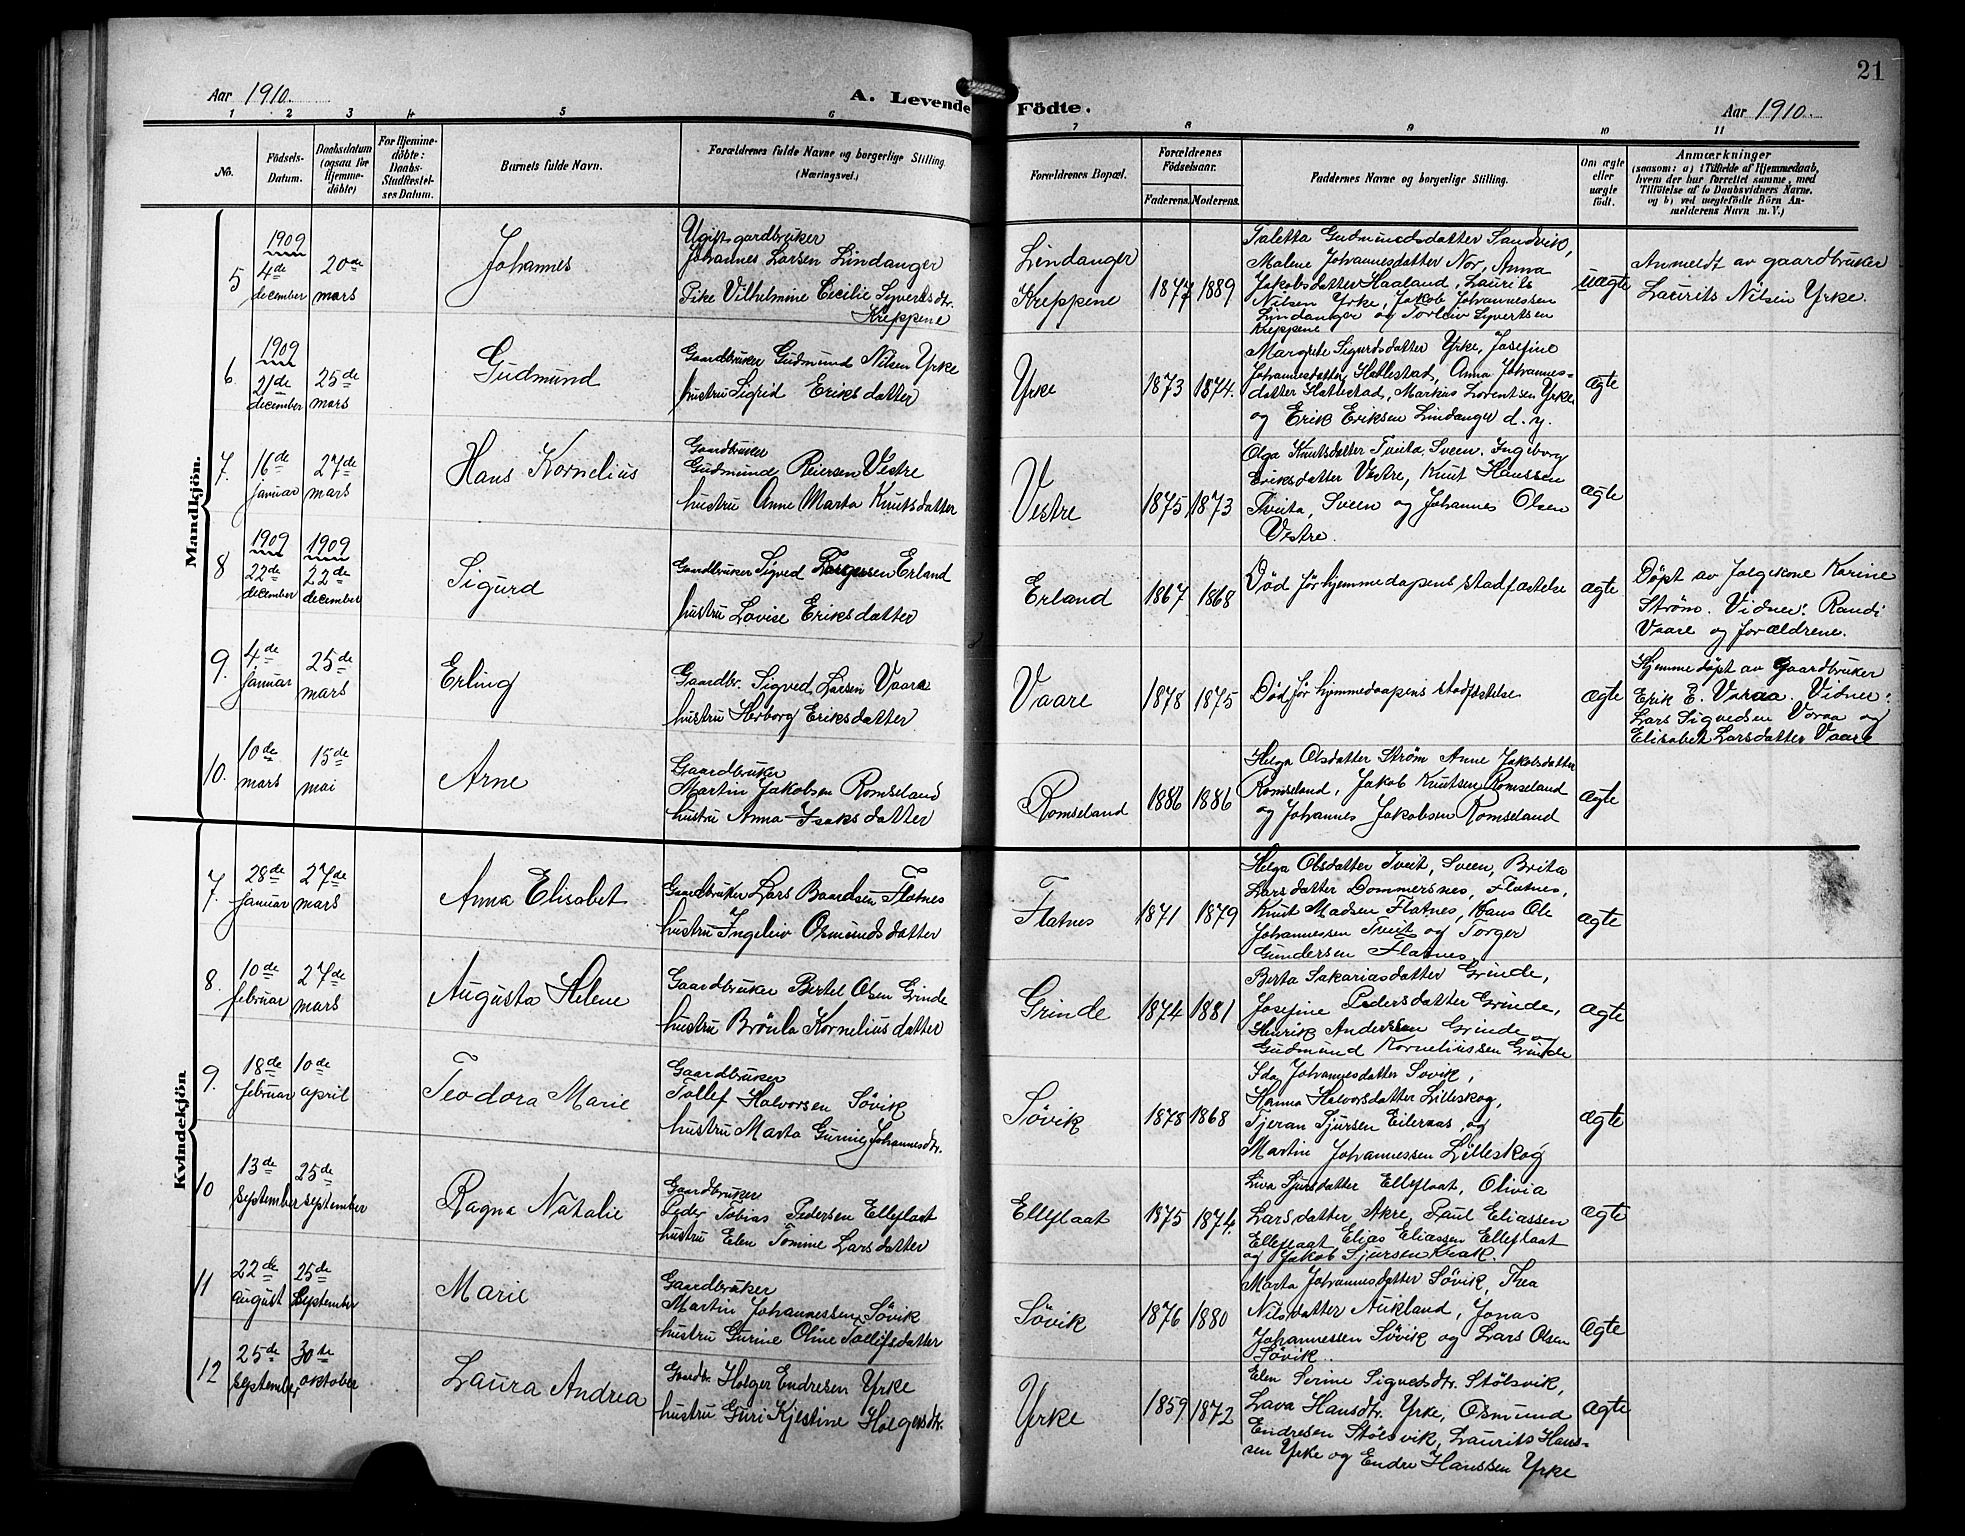 21
Aar 1910.
A. Levende Födte.
Aar 1910.
1 2 3 4 5 6 7 8 9 10 11
No.
Födsels-
Datum.
Daabsdatum
(ogsaa for
Hjemme-
döbte)
For Hjemme-
döbte:
Daabs-
Stadfæstel-
ses Datum.
Barnets fulde Navn.
Forældrenes fulde Navne og borgerlige Stilling.
(Næringsvei.)
Forældrenes Bopæl.
Forældrenes
Födselsaar.
Faderens. Moderens.
Faddernes Navne og borgerlige Stilling.
Om ægte
eller
uægte
födt.
Anmærkninger
(saasom: a) i Tilfælde af Hjemmedaab,
hvem der har forrettet samme, med
Tilföielse af to Daabsvidners Navne,
og b) ved uægtefödte Börn An-
melderens Navn m.V.)
Mandkjön.
5
1909
4de
december
20de
mars
Johannes
Ugift gardbruker
Johannes Larsen Lindanger
Pike Vilhelmine Cecilie Syvertsdtr.
Kreppene
Lindanger
Kreppene
1877 1889
Taletta Gudmundsdatter Sandvik,
Malene Johannesdatter Nor, Anna
Jakobsdatter Haaland, Laurits
Nilsen Yrke, Jakob Johannessen
Lindanger og Torleiv Syvertsen
Kreppene
uægte
Anmeldt av gaardbruker
Laurits Nilsen Yrke.
6.
1909
21de
december
25de
mars
Gudmund
Gaardbruker Gudmund Nilsen Yrke
hustru Sigrid Eriksdatter
Yrke
1873 1874.
Margrete Sigurdsdatter Yrke, Josefine
Johannesdatter Hatlestad, Anna Johannes-
datter Hatlestad, Markus Lorentsen Yrke
og Erik Eriksen Lindanger d. y.
ægte
7.
16de
januar
27de
mars
Hans Kornelius
Gaardbruker
Gudmund Reiersen Vestre
hustru Anne Marta Knutsdatter
Vestre
1875 1873
Olga Knutsdatter Tveita, Sveen, Ingeborg
Eriksdatter Vestre, Knut Hanssen
Tveita, Sveen og Johannes Olsen
Vestre.
ægte
8
1909
22de
december
1909
22de
december
Sigurd
Gaardbruker Sigved Erland
hustru Lovise Eriksdatter
Erland
1867 1868
Död før hjemmedapens stadfæstelse
ægte
Döpt av Jolgekone Karine
Strøm. Vidner: Randi
Vaare og forældrene.
9.
4de
januar
25de
mars
Erling
Gaardbr. Sigved Larsen Vaara
hustru Herborg Eriksdatter
Vaare
1878 1875
Död før hjemmedaapens stadfæstelse
ægte
Hjemmedøpt av gaardbruker
Erik E. Varaa. Vidner:
Lars Sigvedsen Varaa og
Elisabet Larsdatter Vaare
10.
10de
mars
15de
mai
Arne
Gaardbruker
Martin Jakobsen Romseland
hustru Anna Isaksdatter
Romseland
1886 1886
Helga Olsdatter Strøm Anne Jakobsdatter
Romseland, Jakob Knutsen Romseland
og Johannes Jakobsen Romseland
ægte
Kvindekjön
7.
28de
januar
27de
mars
Anna Elisabet
Gaardbruker Lars Baardsen Flatnes
hustru Ingeleiv Osmundsdatter
Flatnes
1871 1879
Helga Olsdatter Tveit, Sveen, Brita
Larsdatter Dommersnes, Flatnes,
Knut Madsen Flatnes, Hans Ole
Johannessen Tveit og Torger
Gundersen Flatnes
ægte
8.
10de
februar
27de
mars
Augusta Helene
Gaardbruker Bertel Olsen Grinde
hustru Brönla Korneliusdatter
Grinde
1874 1881
Berta Sakariasdatter Grinde,
Josefine Pedersdatter Grinde,
Henrik Anderssen Grinde og
Gudmund Korneliussen Grinde
ægte
9.
18de
februar
10de
april
Teodora Marie
Gaardbruker
Tollef Halvorsen Sövik
hustru Marta Gurine Johannesdtr.
Sövik
1878 1868
Ida Johannesdatter Sövik,
Hanna Halvorsdatter Lilleskog,
Tjeran Sjursen Eilernas, og
Martin Johannessen Lilleskog
ægte
10
13de
september
25de
september
Ragna Natalie
Gaardbruker
Peder Tobias Pedersen Elleflaat
hustru Elen Tomine Larsdatter
Elleflaat
1875 1874.
Liva Sjursdatter Elleflaat, Olivia
Larsdatter Akre, Paul Eliassen
Elleflaat Elias Eliassen Elleflaat
og Jakob Sjursen Krak.
ægte
11
22de
august
25de
September
Marie
Gaardbruker
Martin Johannessen Sövik
hustru Gurine Oline Tollefsdatter
Sövik
1876 1880
Marta Johannesdatter Sövik, Thea
Nilsdatter Aukland, Jonas
Johannessen Sövik og Lars Olsen
Sövik.
ægte
12
25de
september
30te
oktober
Laura Andrea
Gaardbr. Holger Endresen Yrke
hustru Guri Kjestine Holgersdtr.
Yrke
1859 1872
Elen Serine Sigvedsdtr. Stölsvik,
Lava Hansdtr. Yrke, Osmund
Endresen Stölsvik, Laurits Hans-
sen Yrke og Endre Hanssen Yrke
ægte